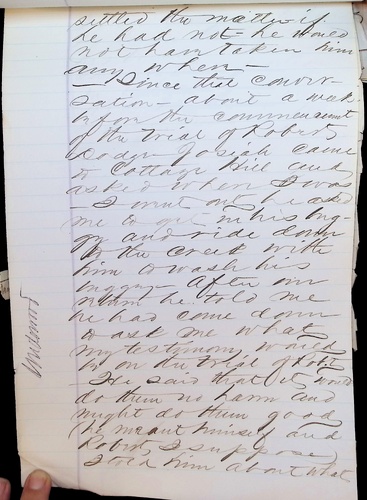 settled the matter if
he had not he would
not have taken him
any where —
— Since that conver-
sation — about a week
before the commencement
of the trial of Robert
Josiah came
to Cottage Hill and
asked where I was
— I went out he asked
me to get in his bug-
gy and ride down
to the creek with
him to wash his
buggy — After our
return he told me
he had come down
to ask me what
my testimony would
be on the trial of Robt
— He said that it would
do them no harm and
might do them good
(he meant himself and
Robert, I suppose)
I told him about what
Underwood